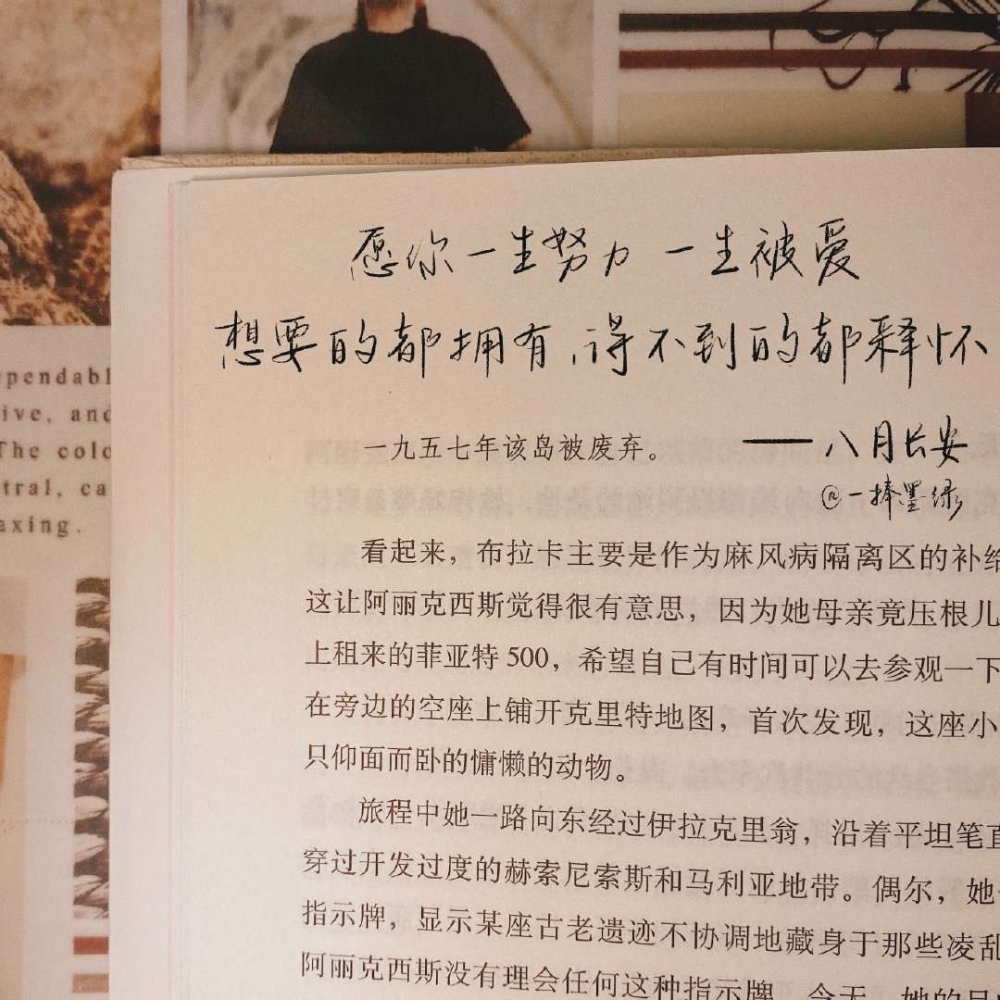 愿你一生努力 一生被爱
想要的都拥有,得不到的都释怀
一九五七年该岛被废弃。
——八月长安
@一捧墨绿
看起来，布拉卡主要是作为麻风病隔离区的补给
这让阿丽克西斯觉得很有意思，因为她母亲竟压根儿
上租来的菲亚特500，希望自己有时间可以去参观一下
在旁边的空座上铺开克里特地图，首次发现，这座小
只仰面而卧的慵懒的动物。
旅程中她一路向东经过伊拉克里翁，沿着平坦笔直
穿过开发过度的赫索尼索斯和马利亚地带。偶尔，她
指示牌，显示某座古老遗迹不协调地藏身于那些凌乱
阿丽克西斯没有理会任何这种指示牌。今天，她的目
ependabl
ive, and
The colo
tral, ca
axing.